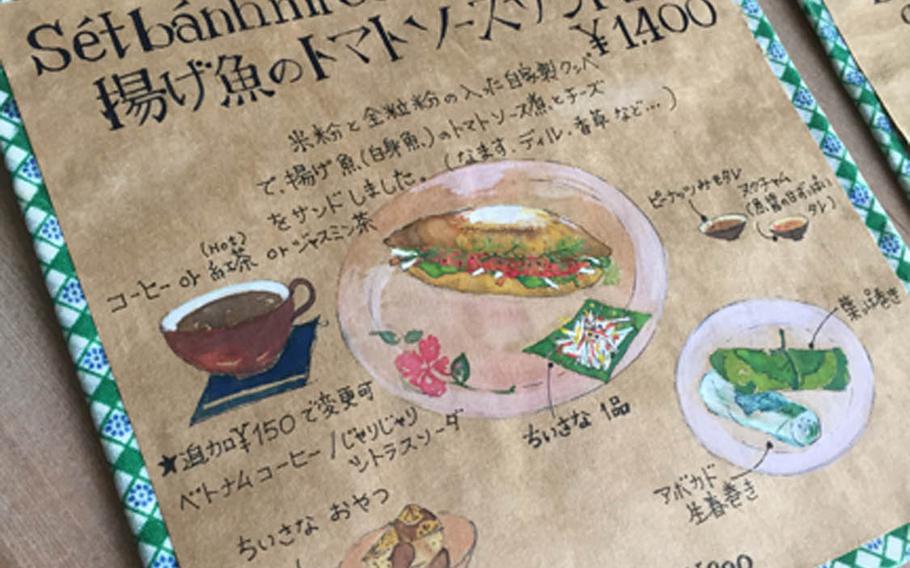 Sét bánh mì
揚げ魚のトマトソースサンド
¥1.400
米粉と全粒粉の入った自家製クッペ
で、揚げ魚(白身魚)のトマトソース煮とチーズ
をサンドしました。(なます、ディル・香草など…)
(Hot)
コーヒー or 紅茶 or ジャスミン茶
ピーナッツみそダレ
ヌクチャム
(魚醤の甘ずっぱい
タレ)
葉っぱ巻き
★追加¥150で変更可
ベトナムコーヒー/じゃりじゃり
シトラスソーダ
ちいさな 1品
アボカド
生春巻き
ちいさな おやつ